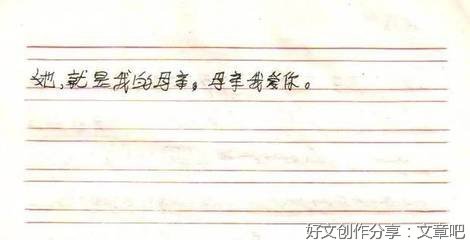 她,就是我的母亲。母亲我爱你。
好文创作分享：文章吧